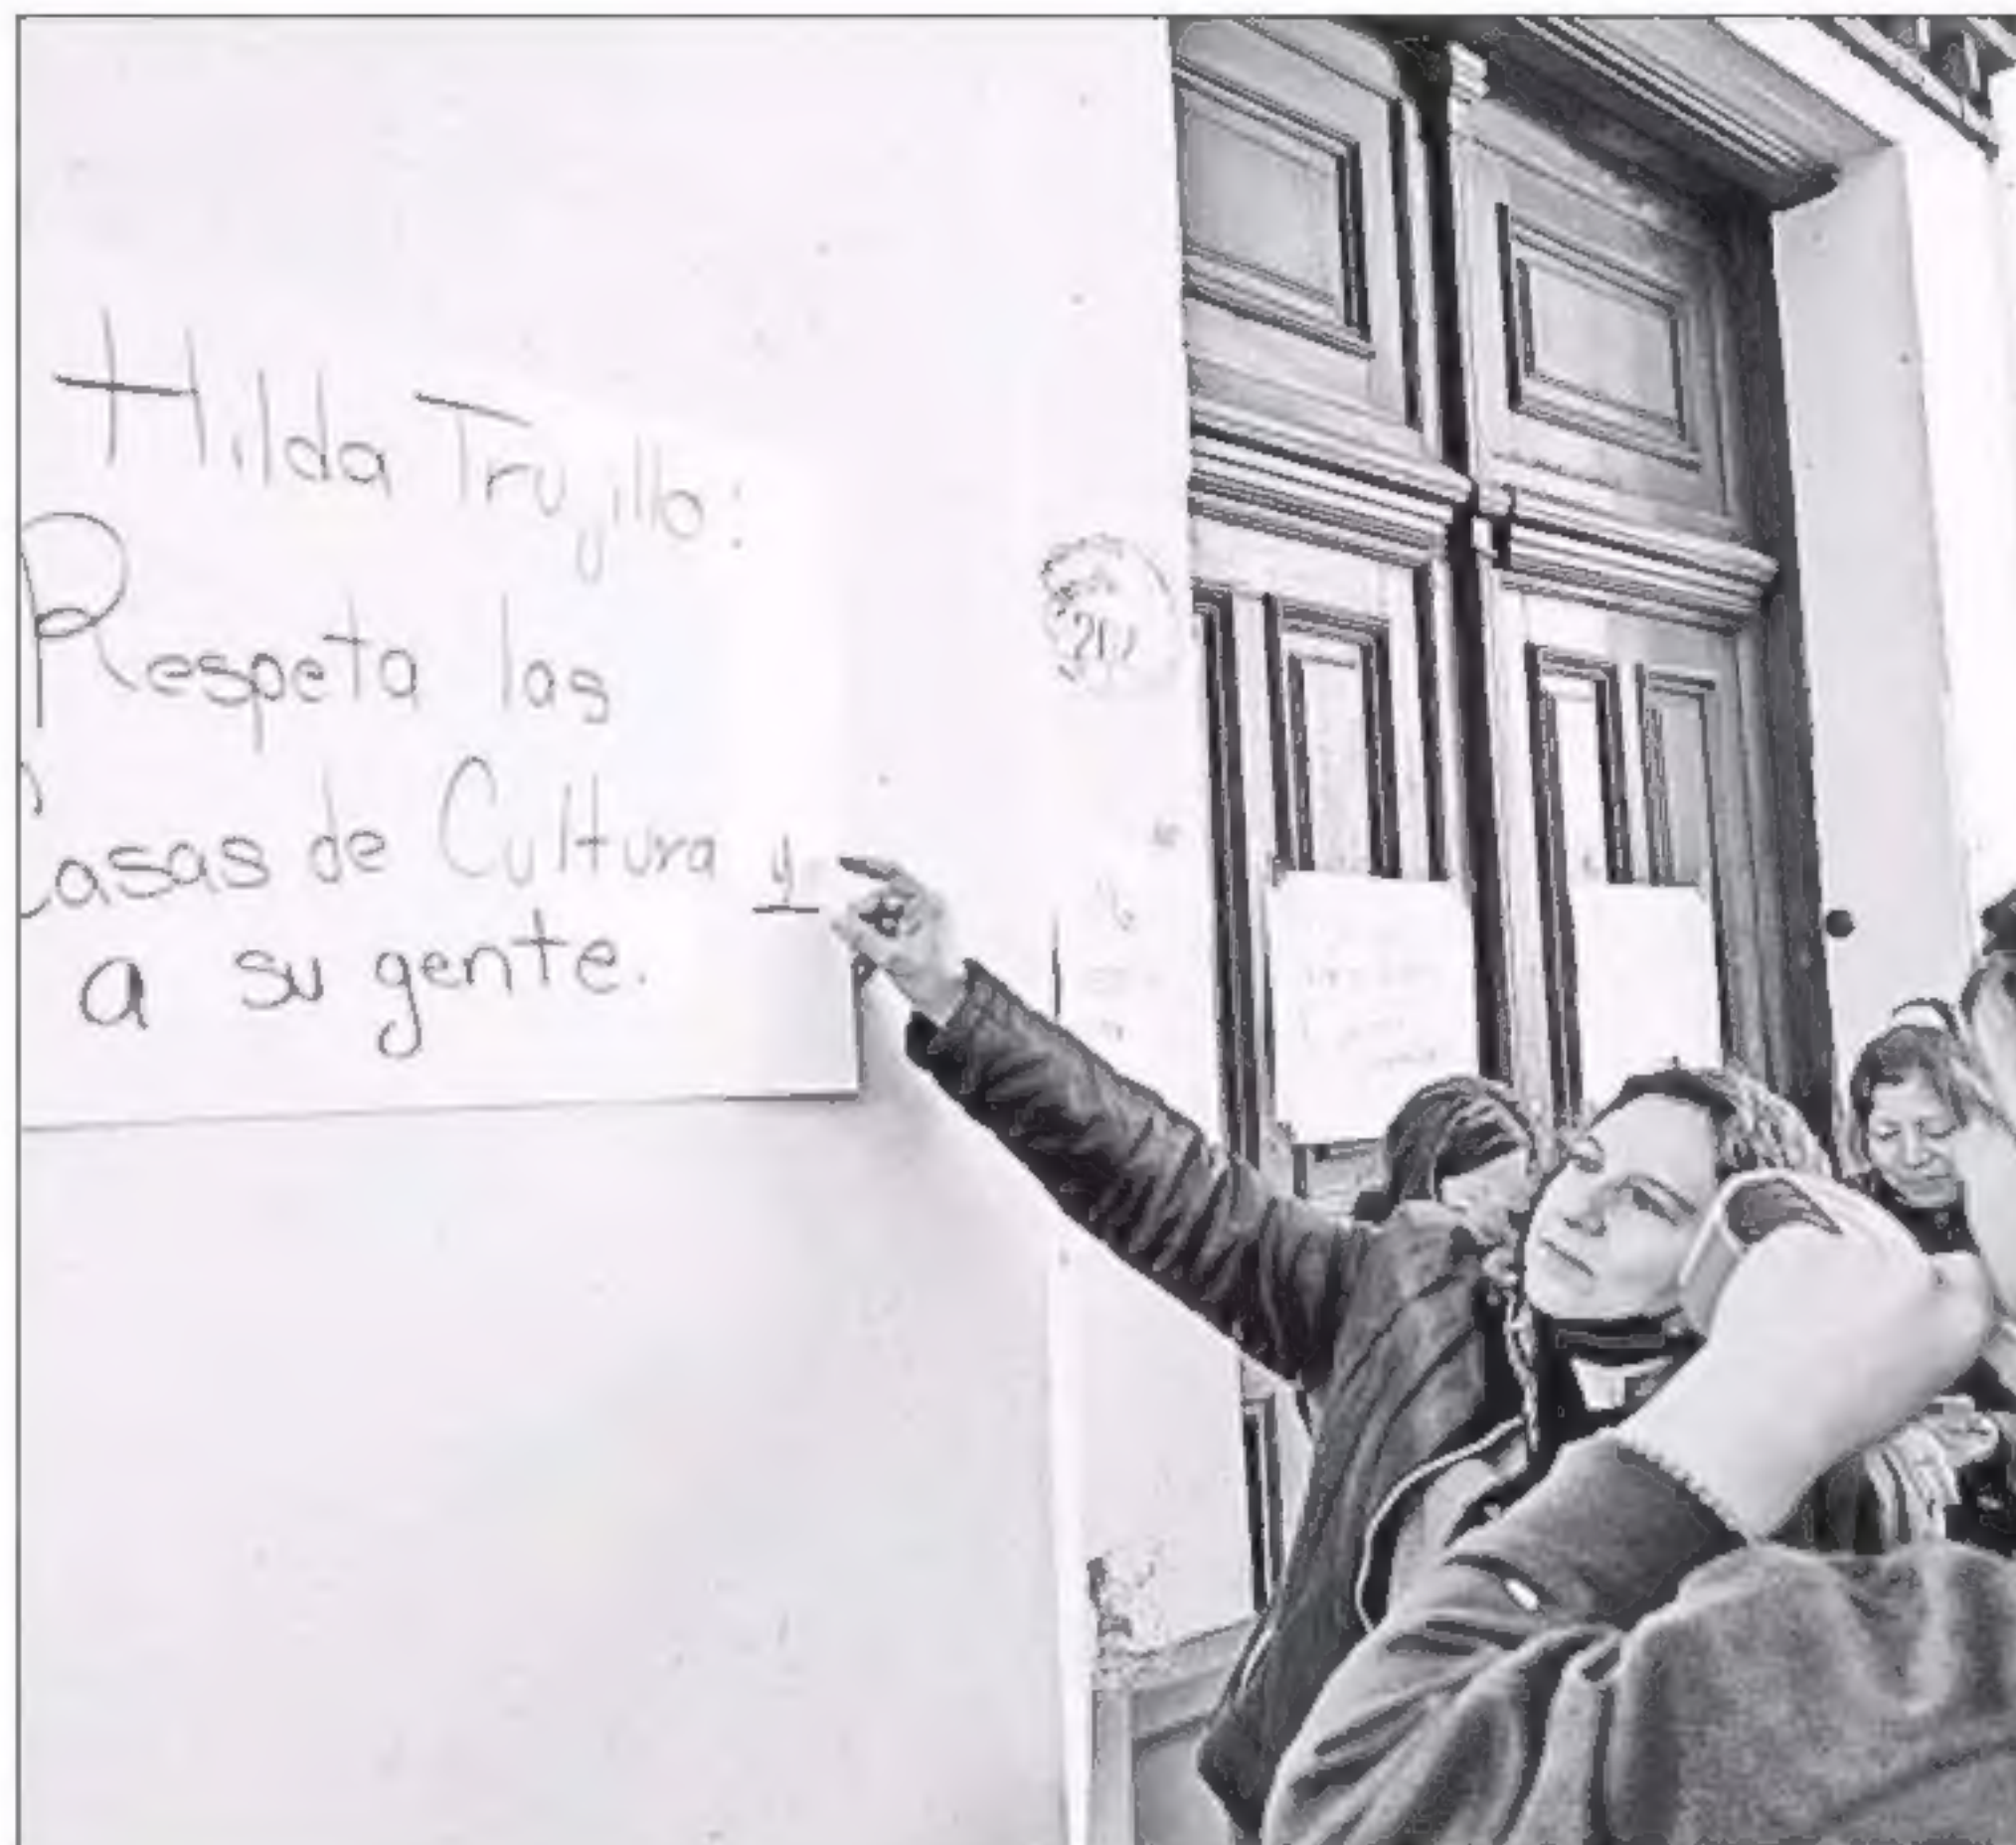 Hilda Trujillo:
Respeta las
Casas de Cultura y
a su gente.